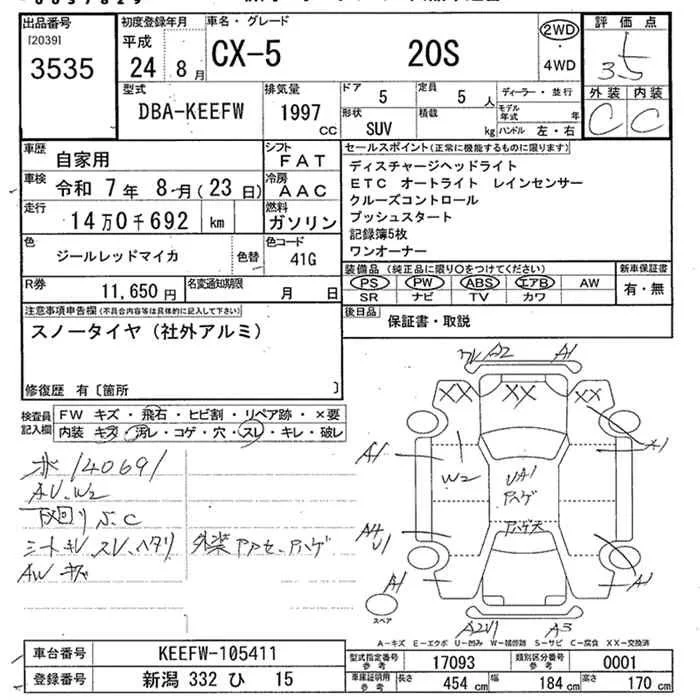 出品番号
[2039]
3535
初度登録年月
平成
24 8 月
車名・グレード
CX-5 20S
2WD
・
4WD
評価点
3.5
外装 内装
C C
型式
DBA-KEEFW
排気量
1997
CC
ドア 5
定員 5 人
形状 SUV
積載 kg
ディーラー・並行
モデル年式 年
ハンドル 左・右
車歴 自家用
シフト FAT
車検 令和 7年 8月(23日)
冷房 AAC
走行 14万0千692 km
燃料 ガソリン
色 ジールレッドマイカ 色替
色コード 41G
R券 11,650 円
名変通知期限 月 日
セールスポイント(正常に機能するものに限ります)
ディスチャージヘッドライト
ETC オートライト レインセンサー
クルーズコントロール
プッシュスタート
記録簿5枚
ワンオーナー
装備品(純正品に限り○をつけてください)
PS PW ABS エアB AW
SR ナビ TV カワ
新車保証書
有・無
後日品 保証書・取説
注意事項申告欄(不具合内容等は具体的に記入して下さい)
スノータイヤ(社外アルミ)
修復歴 有〔箇所 〕
検査員記入欄
FW キズ・飛石・ヒビ割・リペア跡・×要
内装 キズ・汚レ・コゲ・穴・スレ・キレ・破レ
140691
AU、W2
下回り S、C
シートキレ、スレ、ヘタリ
AW キズ
A2 A1
XX XX XX
A1
W2
UA1
ハゲ
X1
A4
U1
A1
A1
A2U1 A3
スペア
A-キズ E-エクボ U-凹み W-補修跡 S-サビ C-腐食 XX-交換済
車台番号 KEEFW-105411
登録番号 新潟 332 ひ 15
型式指定番号 参考 17093
類別区分番号 参考 0001
車庫証明用 参考 長さ 454 cm 幅 184 cm 高さ 170 cm